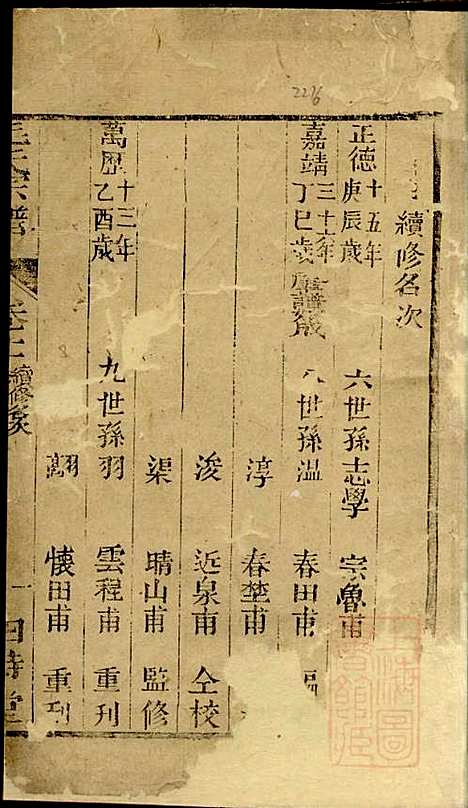 2216
續修名次
正德十五年庚辰歲 六世孫志學 宗魯甫
嘉靖三十六年丁巳歲 八世孫溫 春田甫
淳 春埜甫
浚 近泉甫 仝校
渠 晴山甫 監修
萬歷十三年乙酉歲 九世孫羽 雲程甫 重刊
翮 懷田甫 重刊
王氏宗譜 卷之 續修名次 一
上海圖書館藏